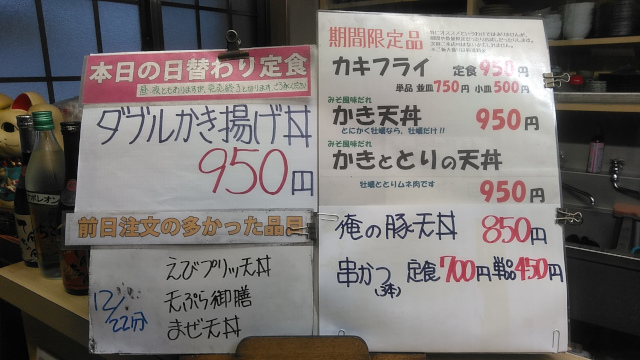 本日の日替わり定食
ダブルかき揚げ丼
950円
前日注文の多かった品目
12/22分
えびプリッ天丼
天ぷら御膳
まぜ天丼
期間限定品
カキフライ 定食 950円
単品 並皿750円 小皿500円
みそ風味だれ
かき天丼 950円
とにかく牡蠣なら、牡蠣だけ!!
みそ風味だれ
かきととりの天丼
牡蠣ととりムネ肉です
950円
俺の豚天丼 850円
串かつ(3本) 定食700円 単品450円